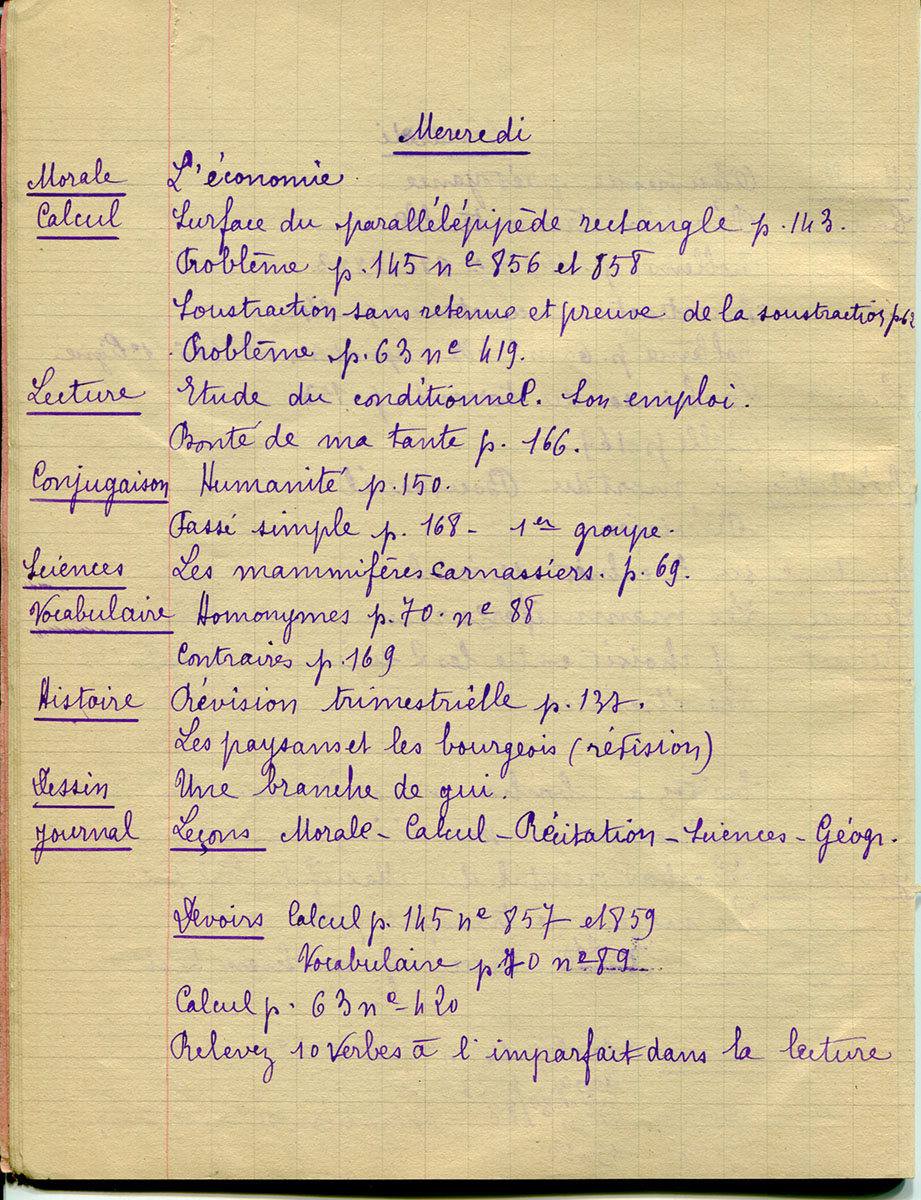 Mercredi
Morale L'économie
Calcul Surface du parallélépipède rectangle p. 143.
Problème p. 145 nº 856 et 858
Soustraction sans retenue et preuve de la soustraction p 62
Problème p. 63 nº 419.
Lecture Etude du conditionnel. Son emploi.
Bonté de ma tante p. 166.
Conjugaison Humanité p. 150.
Passé simple p. 168 - 1er groupe.
Sciences Les mammifères carnassiers. p. 69.
Vocabulaire Homonymes p. 70. nº 88
Contraires p. 169
Histoire Révision trimestrielle p. 137.
Les paysans et les bourgeois (révision)
Dessin Une branche de gui.
Journal Leçons Morale - Calcul - Récitation - Sciences - Géogr.
Devoirs Calcul p. 145 nº 857 et 859
Vocabulaire p 70 nº 89
Calcul p. 63 nº 420
Relevez 10 verbes à l'imparfait dans la lecture